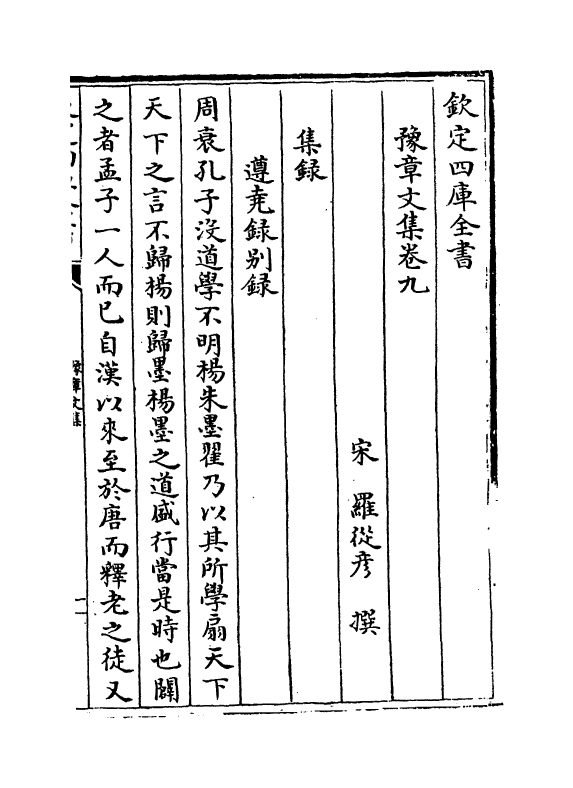 欽定四庫全書
豫章文集卷九
宋　羅從彦　撰
集録
遵堯録别録
周衰孔子没道學不明楊朱墨翟乃以其所學扇天下
天下之言不歸楊則歸墨楊墨之道盛行當是時也闢
之者孟子一人而已自漢以來至於唐而釋老之徒又
豫章文集